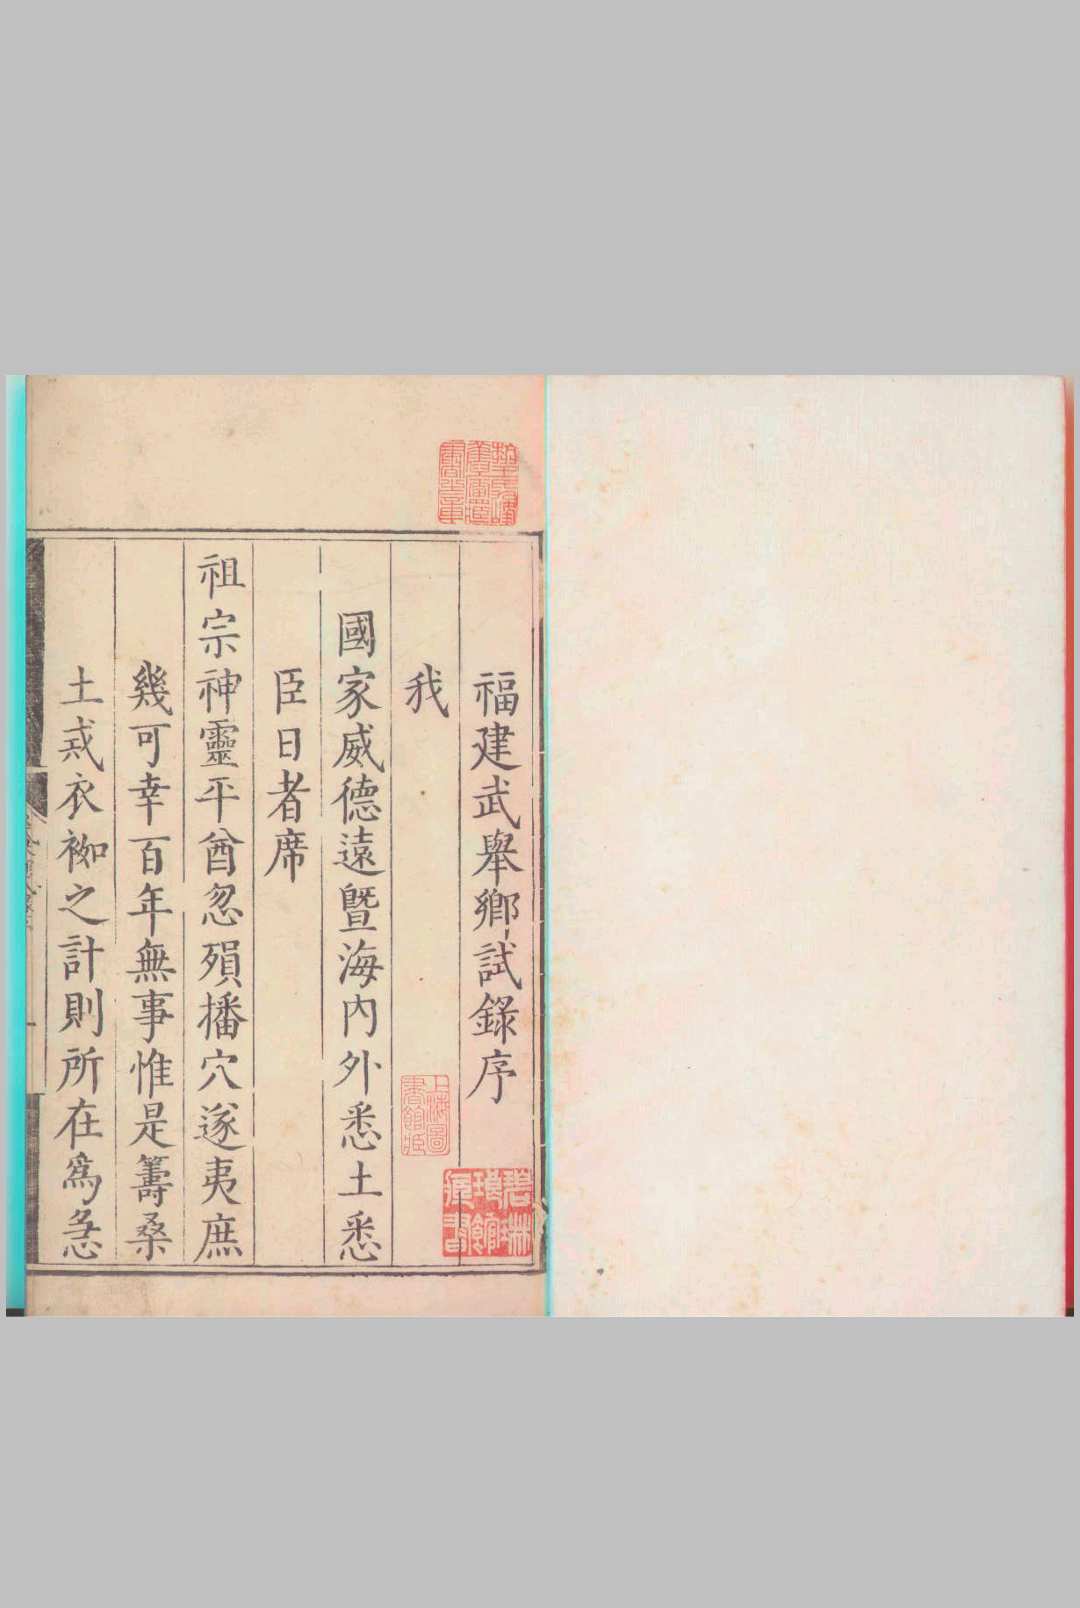 福建武舉鄉試錄序
我
國家威德遠曁海內外悉土悉
臣日者席
祖宗神靈平酋忽殞播穴遂夷庶
幾可幸百年無事惟是籌桑
土戒衣袽之計則所在爲急
上海圖
書館藏
碧琳
琅館
藏書